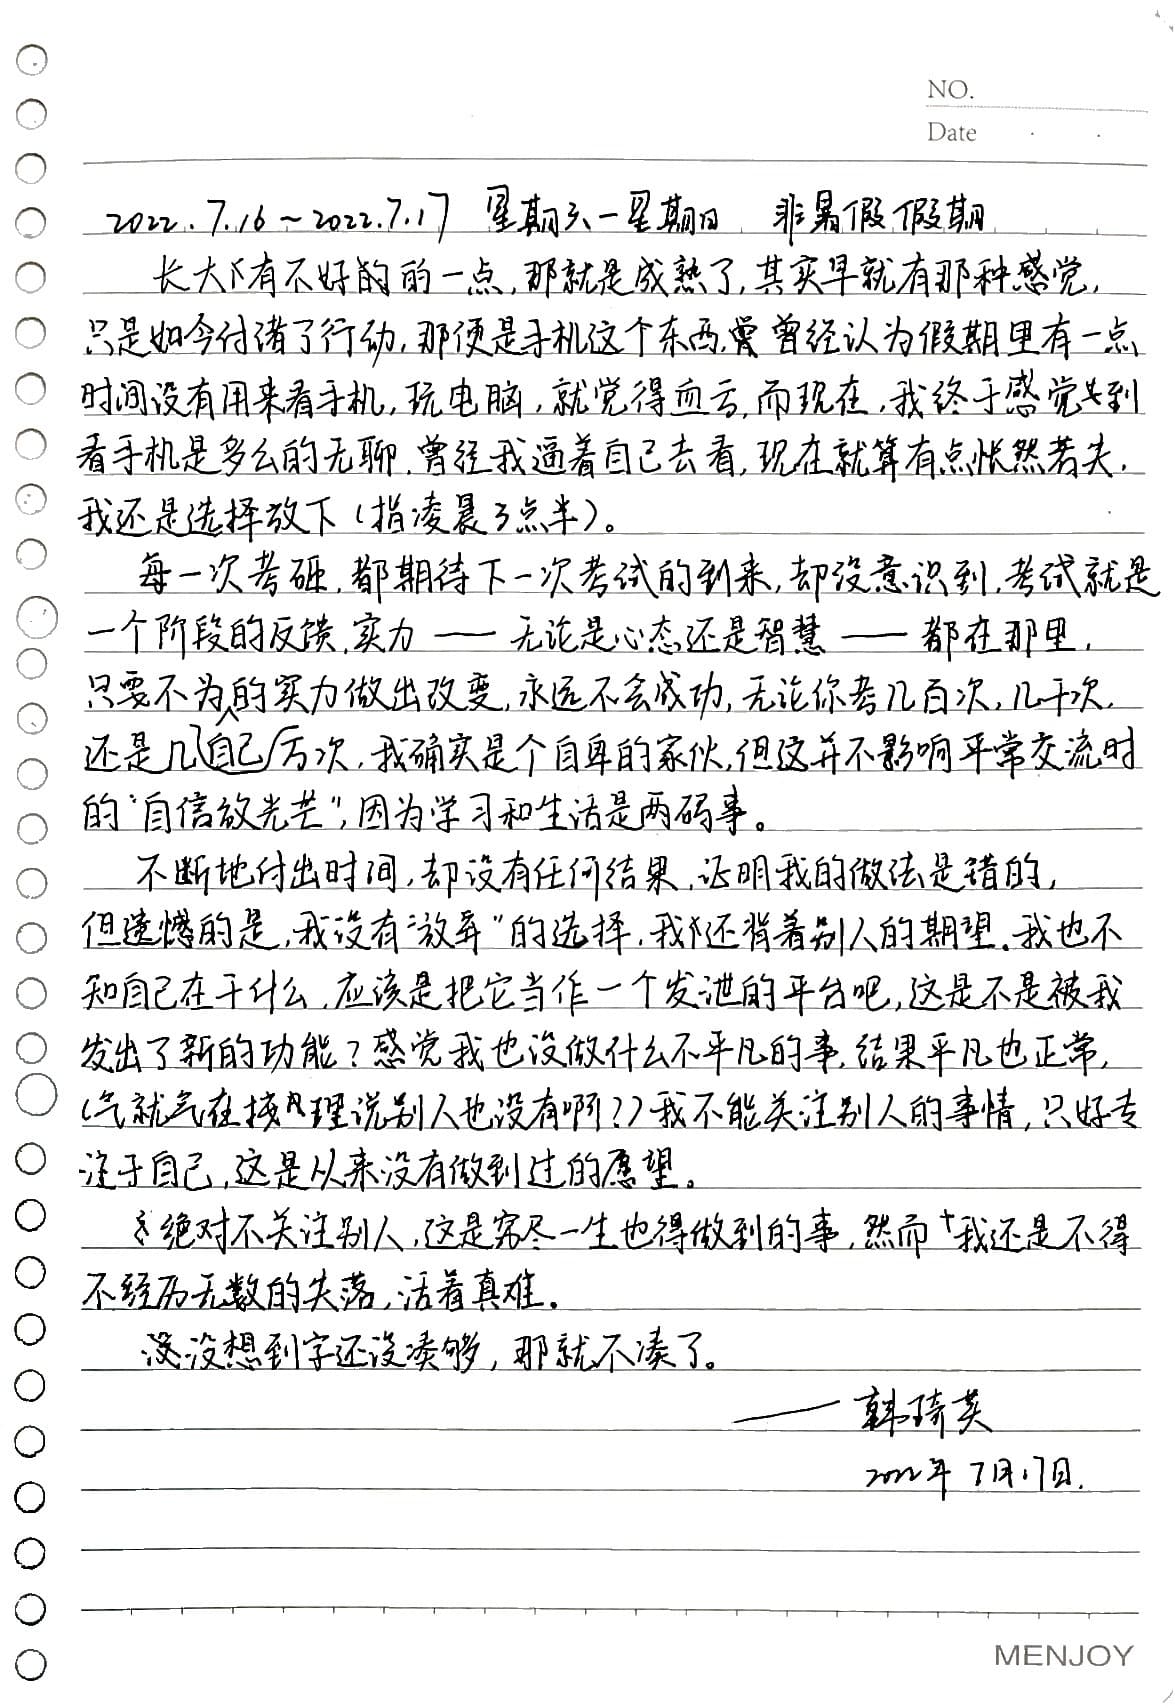 NO.
Date
2022.7.16～2022.7.17 星期六一星期日 非暑假假期
长大有不好的的一点,那就是成熟了,其实早就有那种感觉,
只是如今付诸了行动,那便是手机这个东西,曾经认为假期里有一点
时间没有用来看手机,玩电脑,就觉得血亏,而现在,我终于感觉到
看手机是多么的无聊.曾经我逼着自己去看,现在就算有点怅然若失,
我还是选择放下(指凌晨3点半)。
每一次考砸,都期待下一次考试的到来,却没意识到,考试就是
一个阶段的反馈,实力——无论是心态还是智慧——都在那里,
只要不为自己的实力做出改变,永远不会成功,无论你考几百次,几千次,
还是几万次,我确实是个自卑的家伙,但这并不影响平常交流时
的“自信放光芒”,因为学习和生活是两码事。
不断地付出时间,却没有任何结果,证明我的做法是错的,
但遗憾的是,我没有“放弃”的选择,我还背着别人的期望.我也不
知自己在干什么,应该是把它当作一个发泄的平台吧,这是不是被我
发出了新的功能?感觉我也没做什么不平凡的事,结果平凡也正常,
(气就气在按理说别人也没有啊??)我不能关注别人的事情,只好专
注于自己,这是从来没有做到过的愿望。
绝对不关注别人,这是穷尽一生也得做到的事,然而我还是不得
不经历无数的失落,活着真难.
没想到字还没凑够,那就不凑了。
——韩琦英
2022年7月17日.
MENJOY